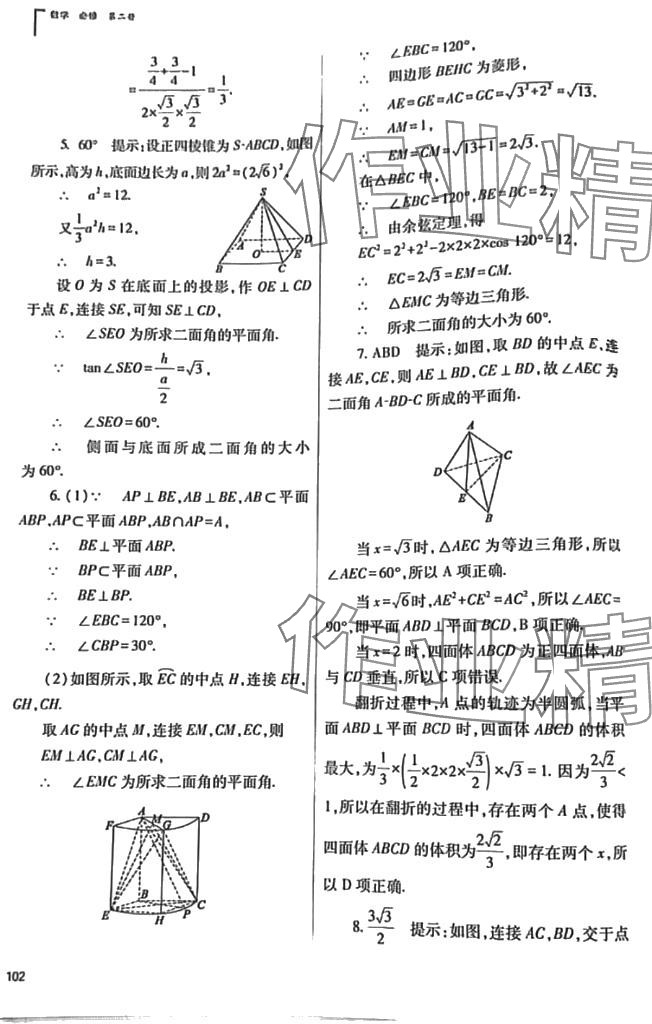 数学 必修 第二册
= (3/4 + 3/4 − 1) / (2×√3/2×√3/2) = 1/3.
5. 60° 提示:设正四棱锥为 S-ABCD,如图
所示,高为 h,底面边长为 a,则 2a²=(2√6)²,
∴ a²=12.
又 1/3 a²h=12,
∴ h=3.
S
A
D
O
E
B
C
设 O 为 S 在底面上的投影,作 OE⊥CD
于点 E,连接 SE,可知 SE⊥CD,
∴ ∠SEO 为所求二面角的平面角.
∵ tan∠SEO= h/(a/2) =√3,
∴ ∠SEO=60°.
∴ 侧面与底面所成二面角的大小
为 60°.
6. (1)∵ AP⊥BE,AB⊥BE,AB⊂平面
ABP,AP⊂平面 ABP,AB∩AP=A,
∴ BE⊥平面 ABP.
∵ BP⊂平面 ABP,
∴ BE⊥BP.
∵ ∠EBC=120°,
∴ ∠CBP=30°.
(2)如图所示,取 EC 的中点 H,连接 EH,
GH,CH.
取 AG 的中点 M,连接 EM,CM,EC,则
EM⊥AG,CM⊥AG,
∴ ∠EMC 为所求二面角的平面角.
A
D
F
M
G
B
C
E
H
P
102
∵ ∠EBC=120°,
∴ 四边形 BEHC 为菱形,
∴ AE=GE=AC=GC=√(3²+2²)=√13.
∵ AM=1,
∴ EM=CM=√(13−1)=2√3.
在△BEC 中,
∵ ∠EBC=120°,BE=BC=2,
∴ 由余弦定理,得
EC²=2²+2²−2×2×2×cos 120°=12,
∴ EC=2√3=EM=CM.
∴ △EMC 为等边三角形.
∴ 所求二面角的大小为 60°.
7. ABD 提示:如图,取 BD 的中点 E,连
接 AE,CE,则 AE⊥BD,CE⊥BD,故∠AEC 为
二面角 A-BD-C 所成的平面角.
A
C
D
E
B
当 x=√3时,△AEC 为等边三角形,所以
∠AEC=60°,所以 A 项正确.
当 x=√6时,AE²+CE²=AC²,所以∠AEC=
90°,即平面 ABD⊥平面 BCD,B 项正确.
当 x=2 时,四面体 ABCD 为正四面体,AB
与 CD 垂直,所以 C 项错误.
翻折过程中,A 点的轨迹为半圆弧,当平
面 ABD⊥平面 BCD 时,四面体 ABCD 的体积
最大,为 1/3×(1/2×2×2×√3/2)×√3=1. 因为 2√2/3 <
1,所以在翻折的过程中,存在两个 A 点,使得
四面体 ABCD 的体积为 2√2/3,即存在两个 x,所
以 D 项正确.
8. 3√3/2 提示:如图,连接 AC,BD,交于点
作业精
作业精